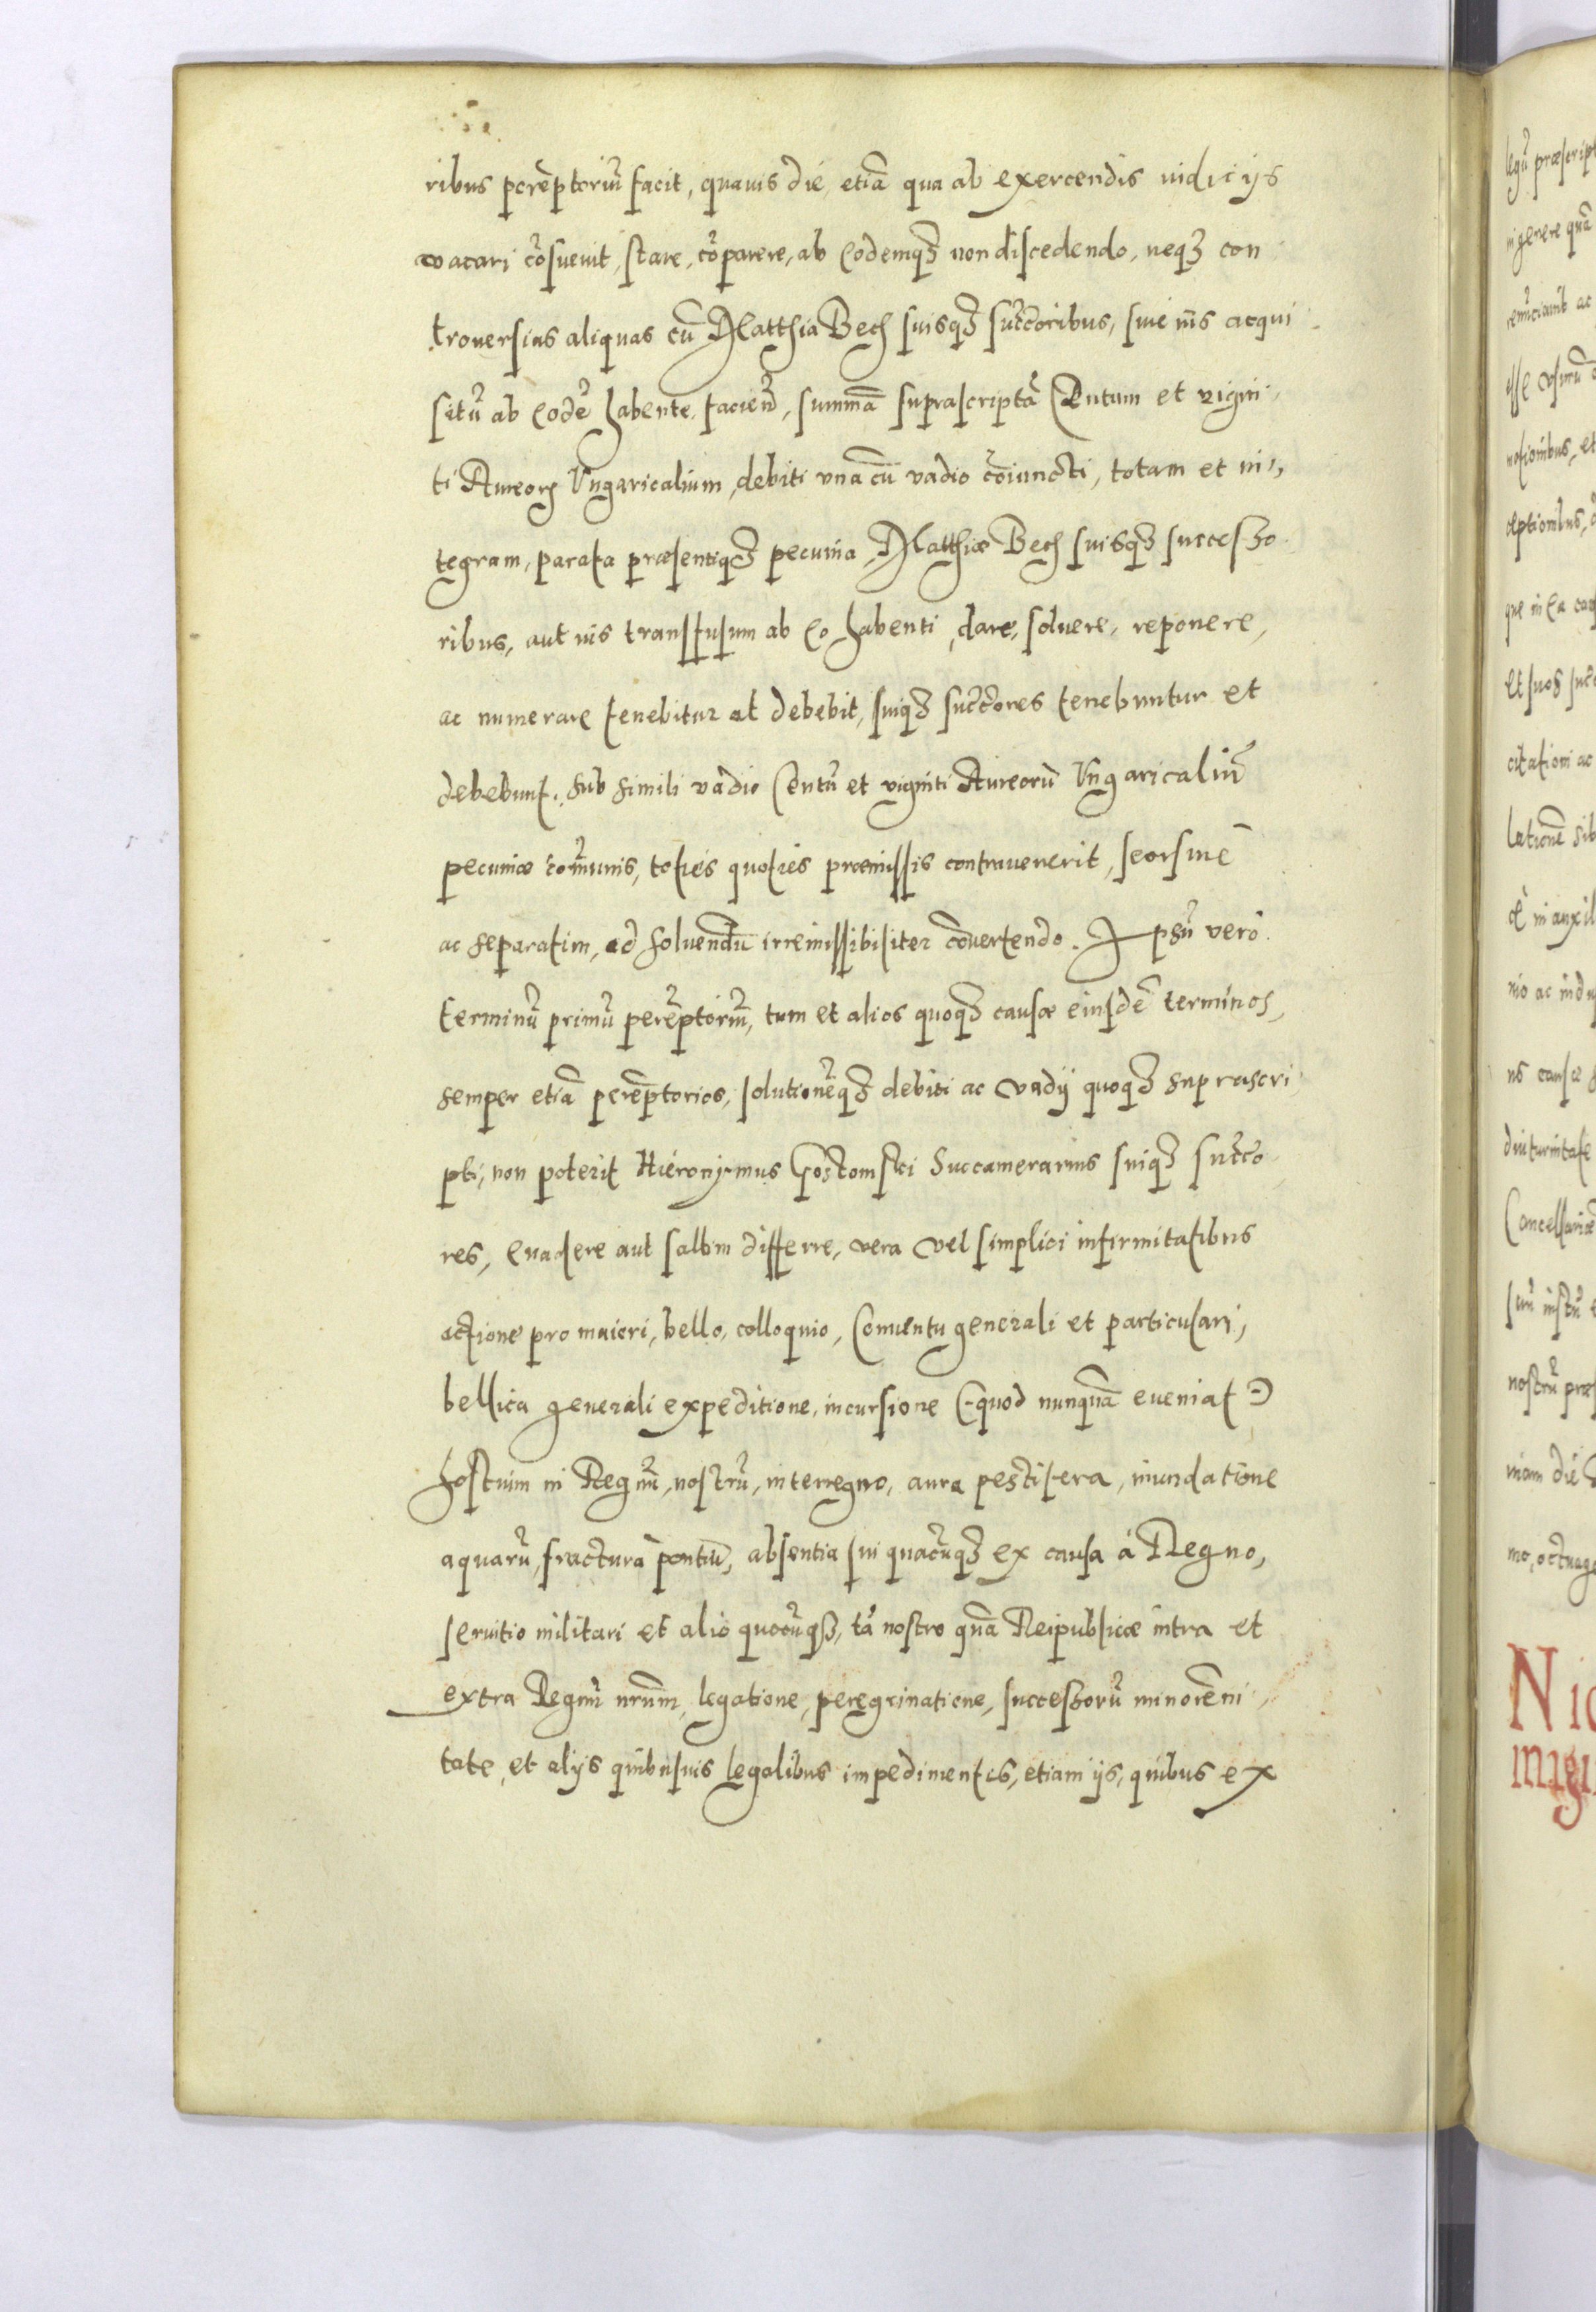 ribus perẽptoriũ facit, quauis die etiã qua ab exercendis iudicijs
vacari cõsueuit, stare, cõparere, ab eodemq3 non discedendo, neq3 con
trouersias aliquas cũ Matthia Bech suisq3 succ̃oribus, siue ius acqui
situ ab eodẽ habente, faciẽn, summã suprascriptã Centum et vigin
ti Aureorꝝ Vngaricalium, debiti vna cũ vadio cõiuncti, totam et in,
tegram, parata præsentiq3 pecunia, Matthiæ Bech suisq3 successo
ribus, aut ius transfusum ab eo habenti, dare, soluere, reponere,
ac numerare tenebitur at debebit, suiq3 succ̃ores tenebuntur et
debebunt, sub simili vadio Centũ et viginti Aureorũ Vngaricaliũ
pecuniæ cõmunis, toties quoties præmissis contrauenerit, seorsiuẽ
ac separatim, ad soluendũ irremissibiliter cõuertendo. Ipsũ vero
terminũ primũ perẽptoriũ, tum et alios quoq3 causæ eiusdẽ terminos,
semper etiã perẽptorios, solutionẽq3 debiti ac vadij quoq3 suprascri
pti, non poterit Hieronymus Gostomski Succamerarius suiq3 succ̃o
res, euadere aut saltim differre, vera vel simplici infirmitatibus
actione pro maiori, bello, colloquio, Conuentu generali et particulari,
bellica generali expeditione, incursione (quod nunquã eueniat)
hostium in Regnũ nostrũ, interregno, aura pestifera, inundatione
aquarũ, fractura pontiũ, absentia sui quacũq3 ex causa á Regno,
seruitio militari et alio quocũq3, tã nostro quã Reipublicæ intra et
extra Regnũ nr̃um, legatione, peregrinatione, successorũ minorẽni
tate, et alijs quibusuis legalibus impedimentis, etiam ijs, quibus ex
legũ præscript
in genere quã
renũciauit ac
esse
ceptionibus,
que in ea cau
et suos succ
citationi ac
lationẽ sib
in auxil
nio ac indu
ns causæ
diuturnitate
Cancellariæ
nostrũ præs
mo, octuage
Nic